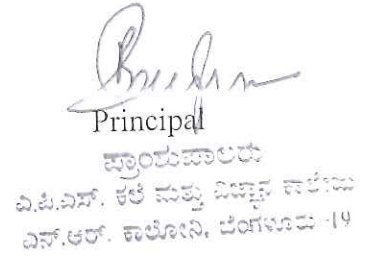 Principal
ಪ್ರಾಂಶುಪಾಲರು
ಎ.ಪಿ.ಎಸ್. ಕಲೆ ಮತ್ತು ವಿಜ್ಞಾನ ಕಾಲೇಜು
ಎನ್.ಆರ್. ಕಾಲೋನಿ, ಬೆಂಗಳೂರು -19